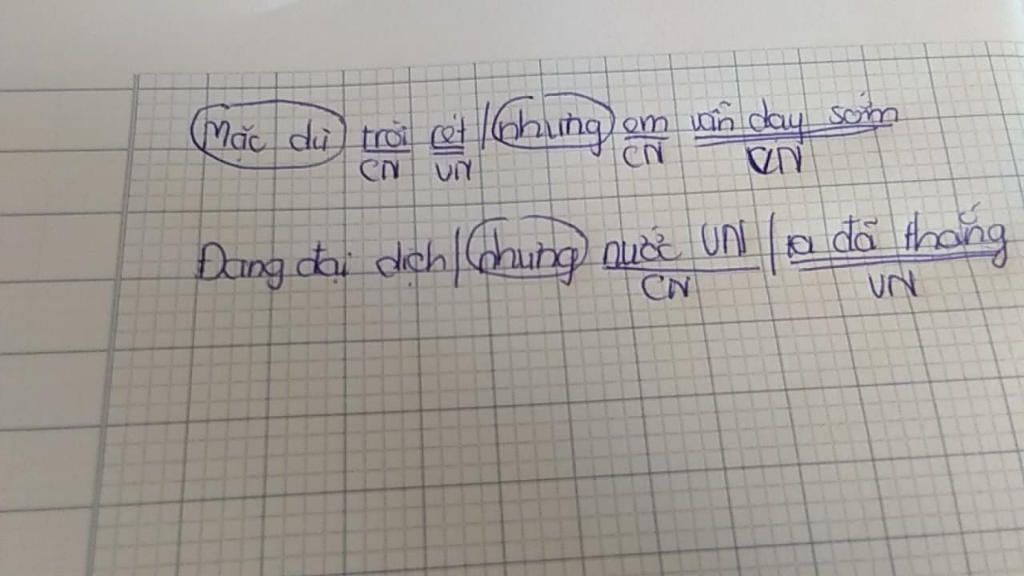 Mặc dù trời rét / nhưng em vẫn dạy sớm
CN VN CN VN
Đang đại dịch / nhưng nước VN / ta đã thắng
CN VN